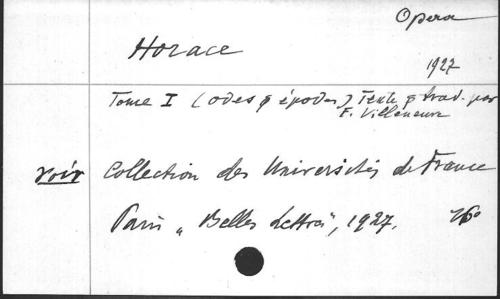 Opera
Horace
1927
Tome I (odes & épodes) Texte & trad. par
F. Villeneuve
voir Collection des Universités de France
Paris "Belles Lettres", 1927. 16°